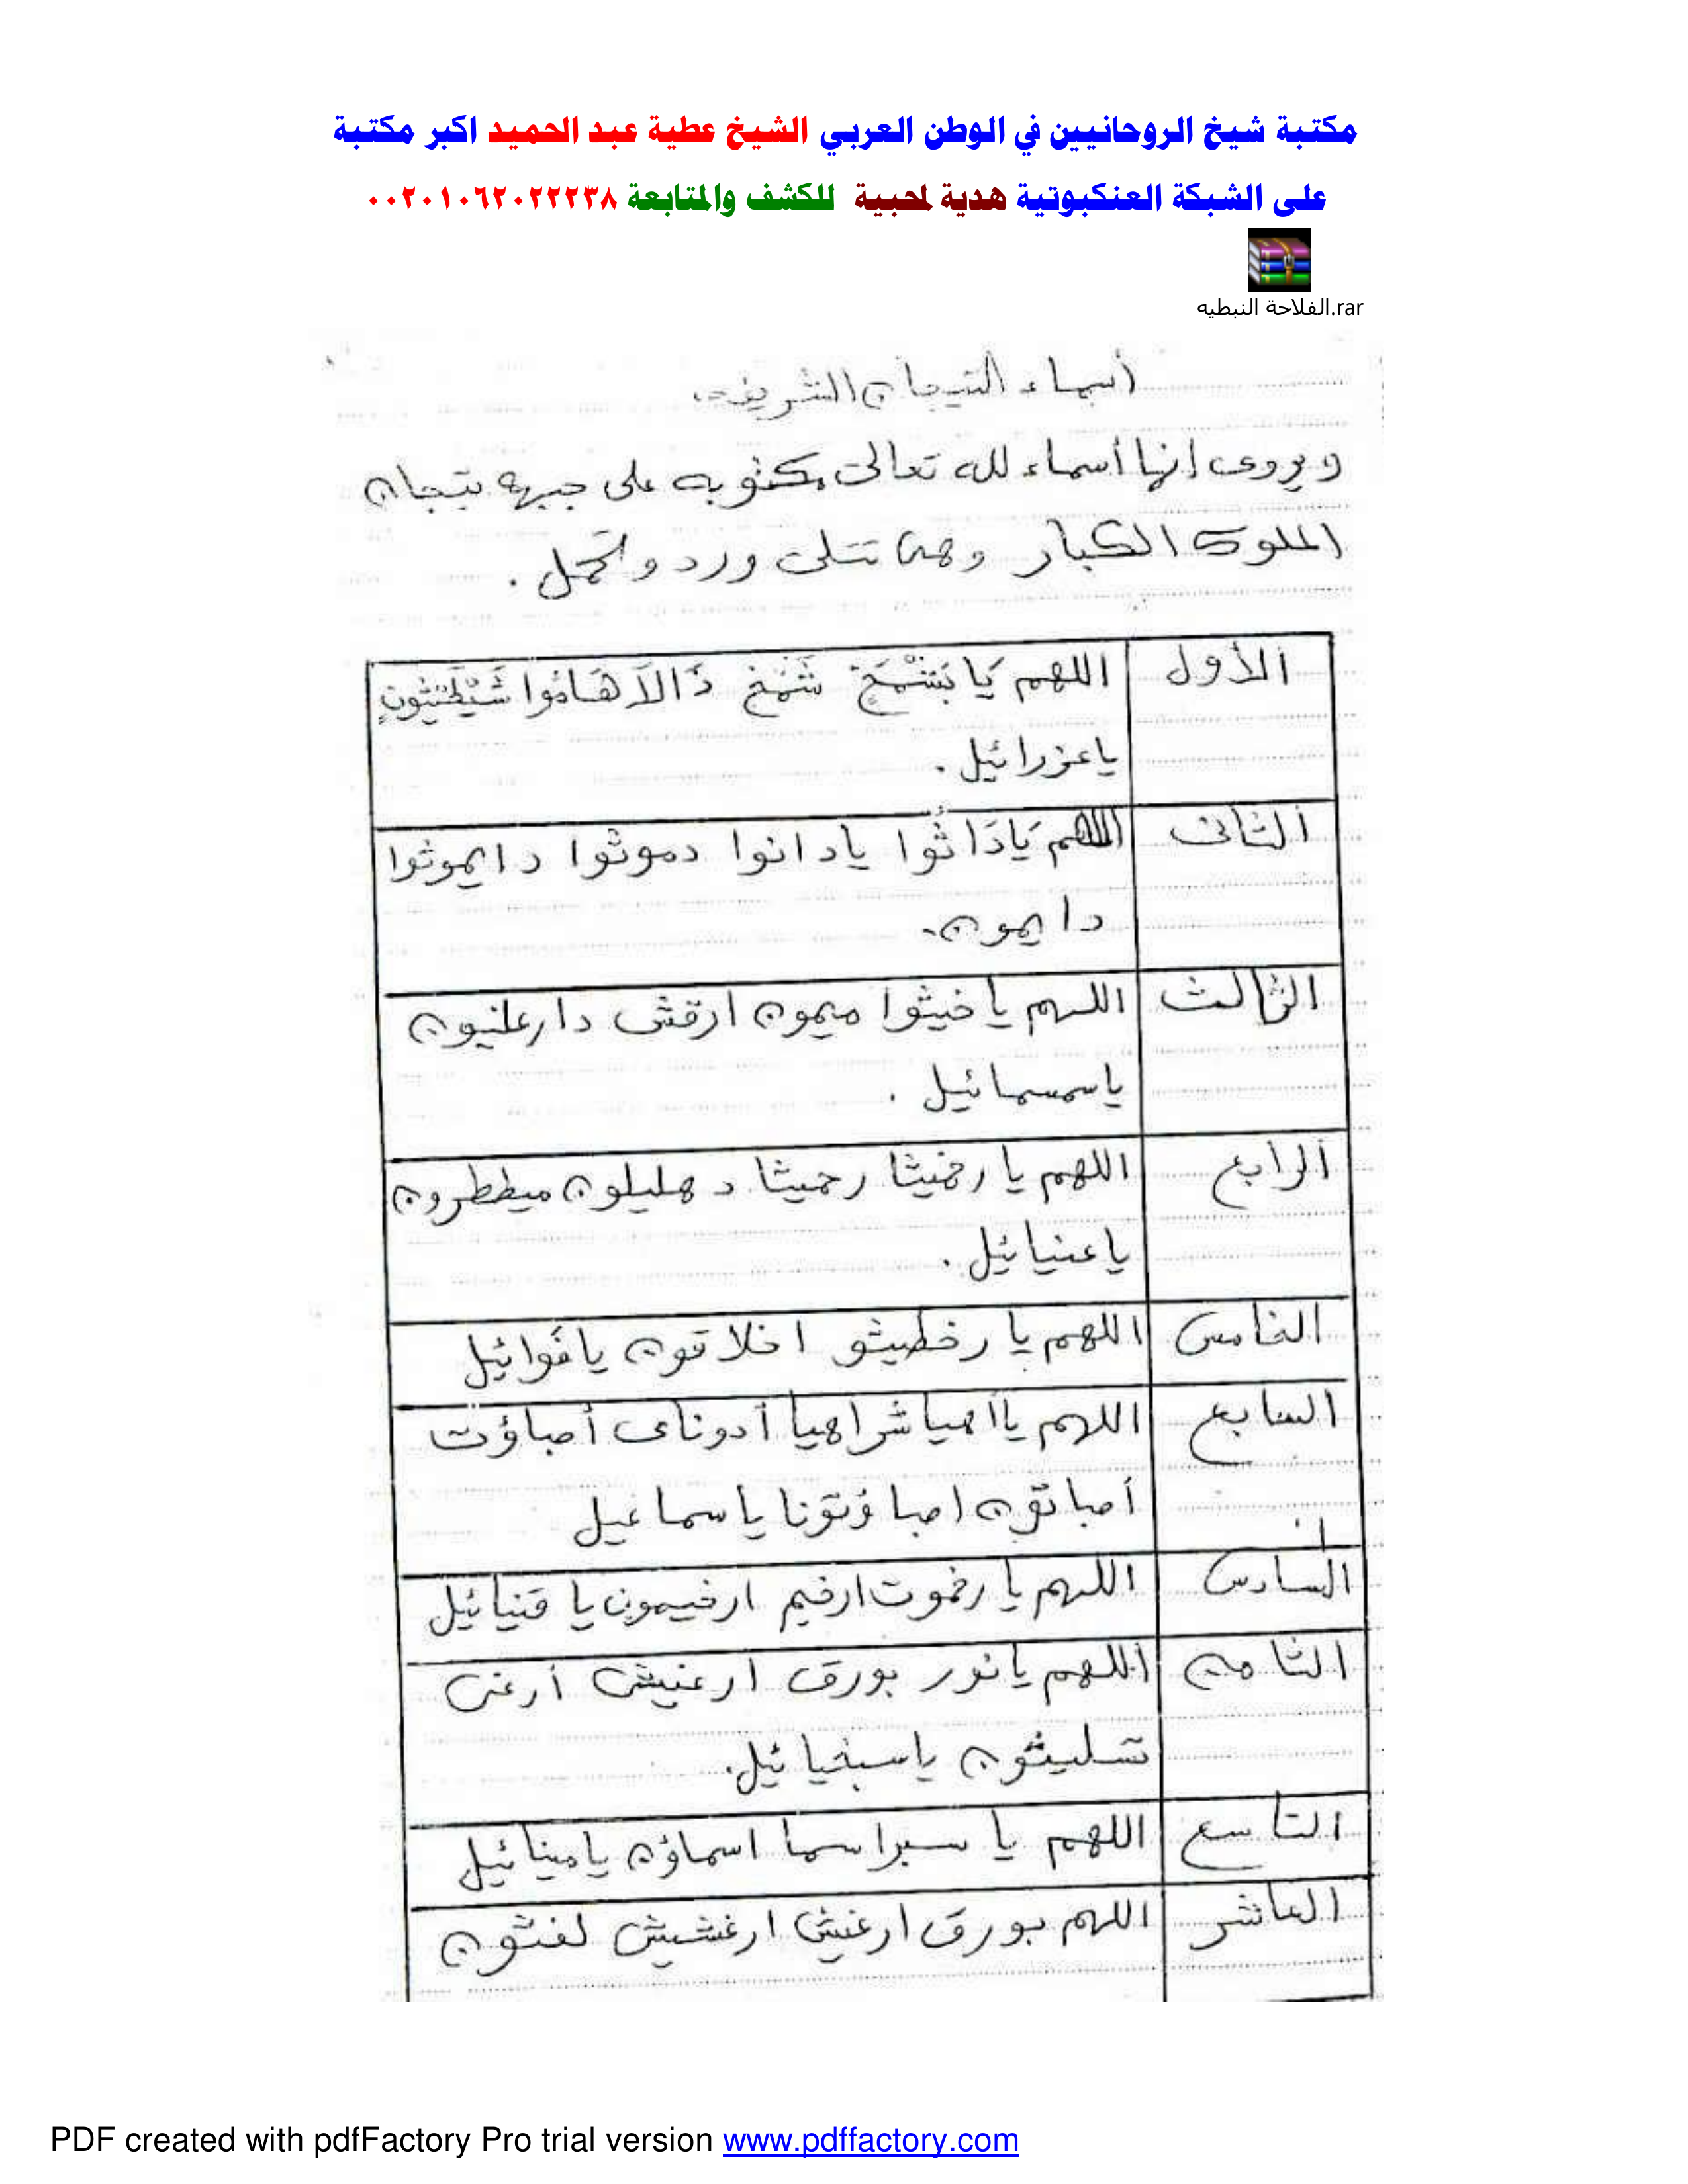 مكتبة شيخ الروحانيين في الوطن العربي الشيخ عطية عبد الحميد اكبر مكتبة
على الشبكة العنكبوتية هدية لمحبية للكشف والمتابعة ٠٠٢٠١٠٦٢٠٢٢٢٣٨
الفلاحة النبطيه.rar
أسماء التيجان الشريفة
ويروى إنها أسماء لله تعالى مكتوبه على جبهة تيجان
الملوك الكبار وهى تتلى ورد وتحمل .
الأول اللهم يَا بَشْمَخٍ شَمْخ ذَالَاهَامُوا شَيْطَيْثُونٍ
ياعزرائيل .
الثانى اللهم يَادَاثُوا يادانوا دموثوا دايموثوا
دايمون.
الثالث اللهم ياخيثوا ميمون ارقش دارعليون
ياسمسمائيل .
الرابع اللهم يا رخميثا رحميثا د هليلون ميططرون
ياعنيائيل .
الخامس اللهم يا رخطيثو اخلاقون يافوائيل
السابع اللهم ياأهيا شراهيا أدوناى أصباؤت
أصباتون اصباؤتونا ياسماعيل
السادس اللهم يا رخموت ارخيم ارخيمون يا قنيائيل
الثامن اللهم يانور بورق ارعنيش أرغى
تسليثون ياسبخيائيل.
التاسع اللهم يا سبرا سما اسماؤن يامينائيل
العاشر اللهم بورق ارغيش ارغشيش لغثون
PDF created with pdfFactory Pro trial version www.pdffactory.com